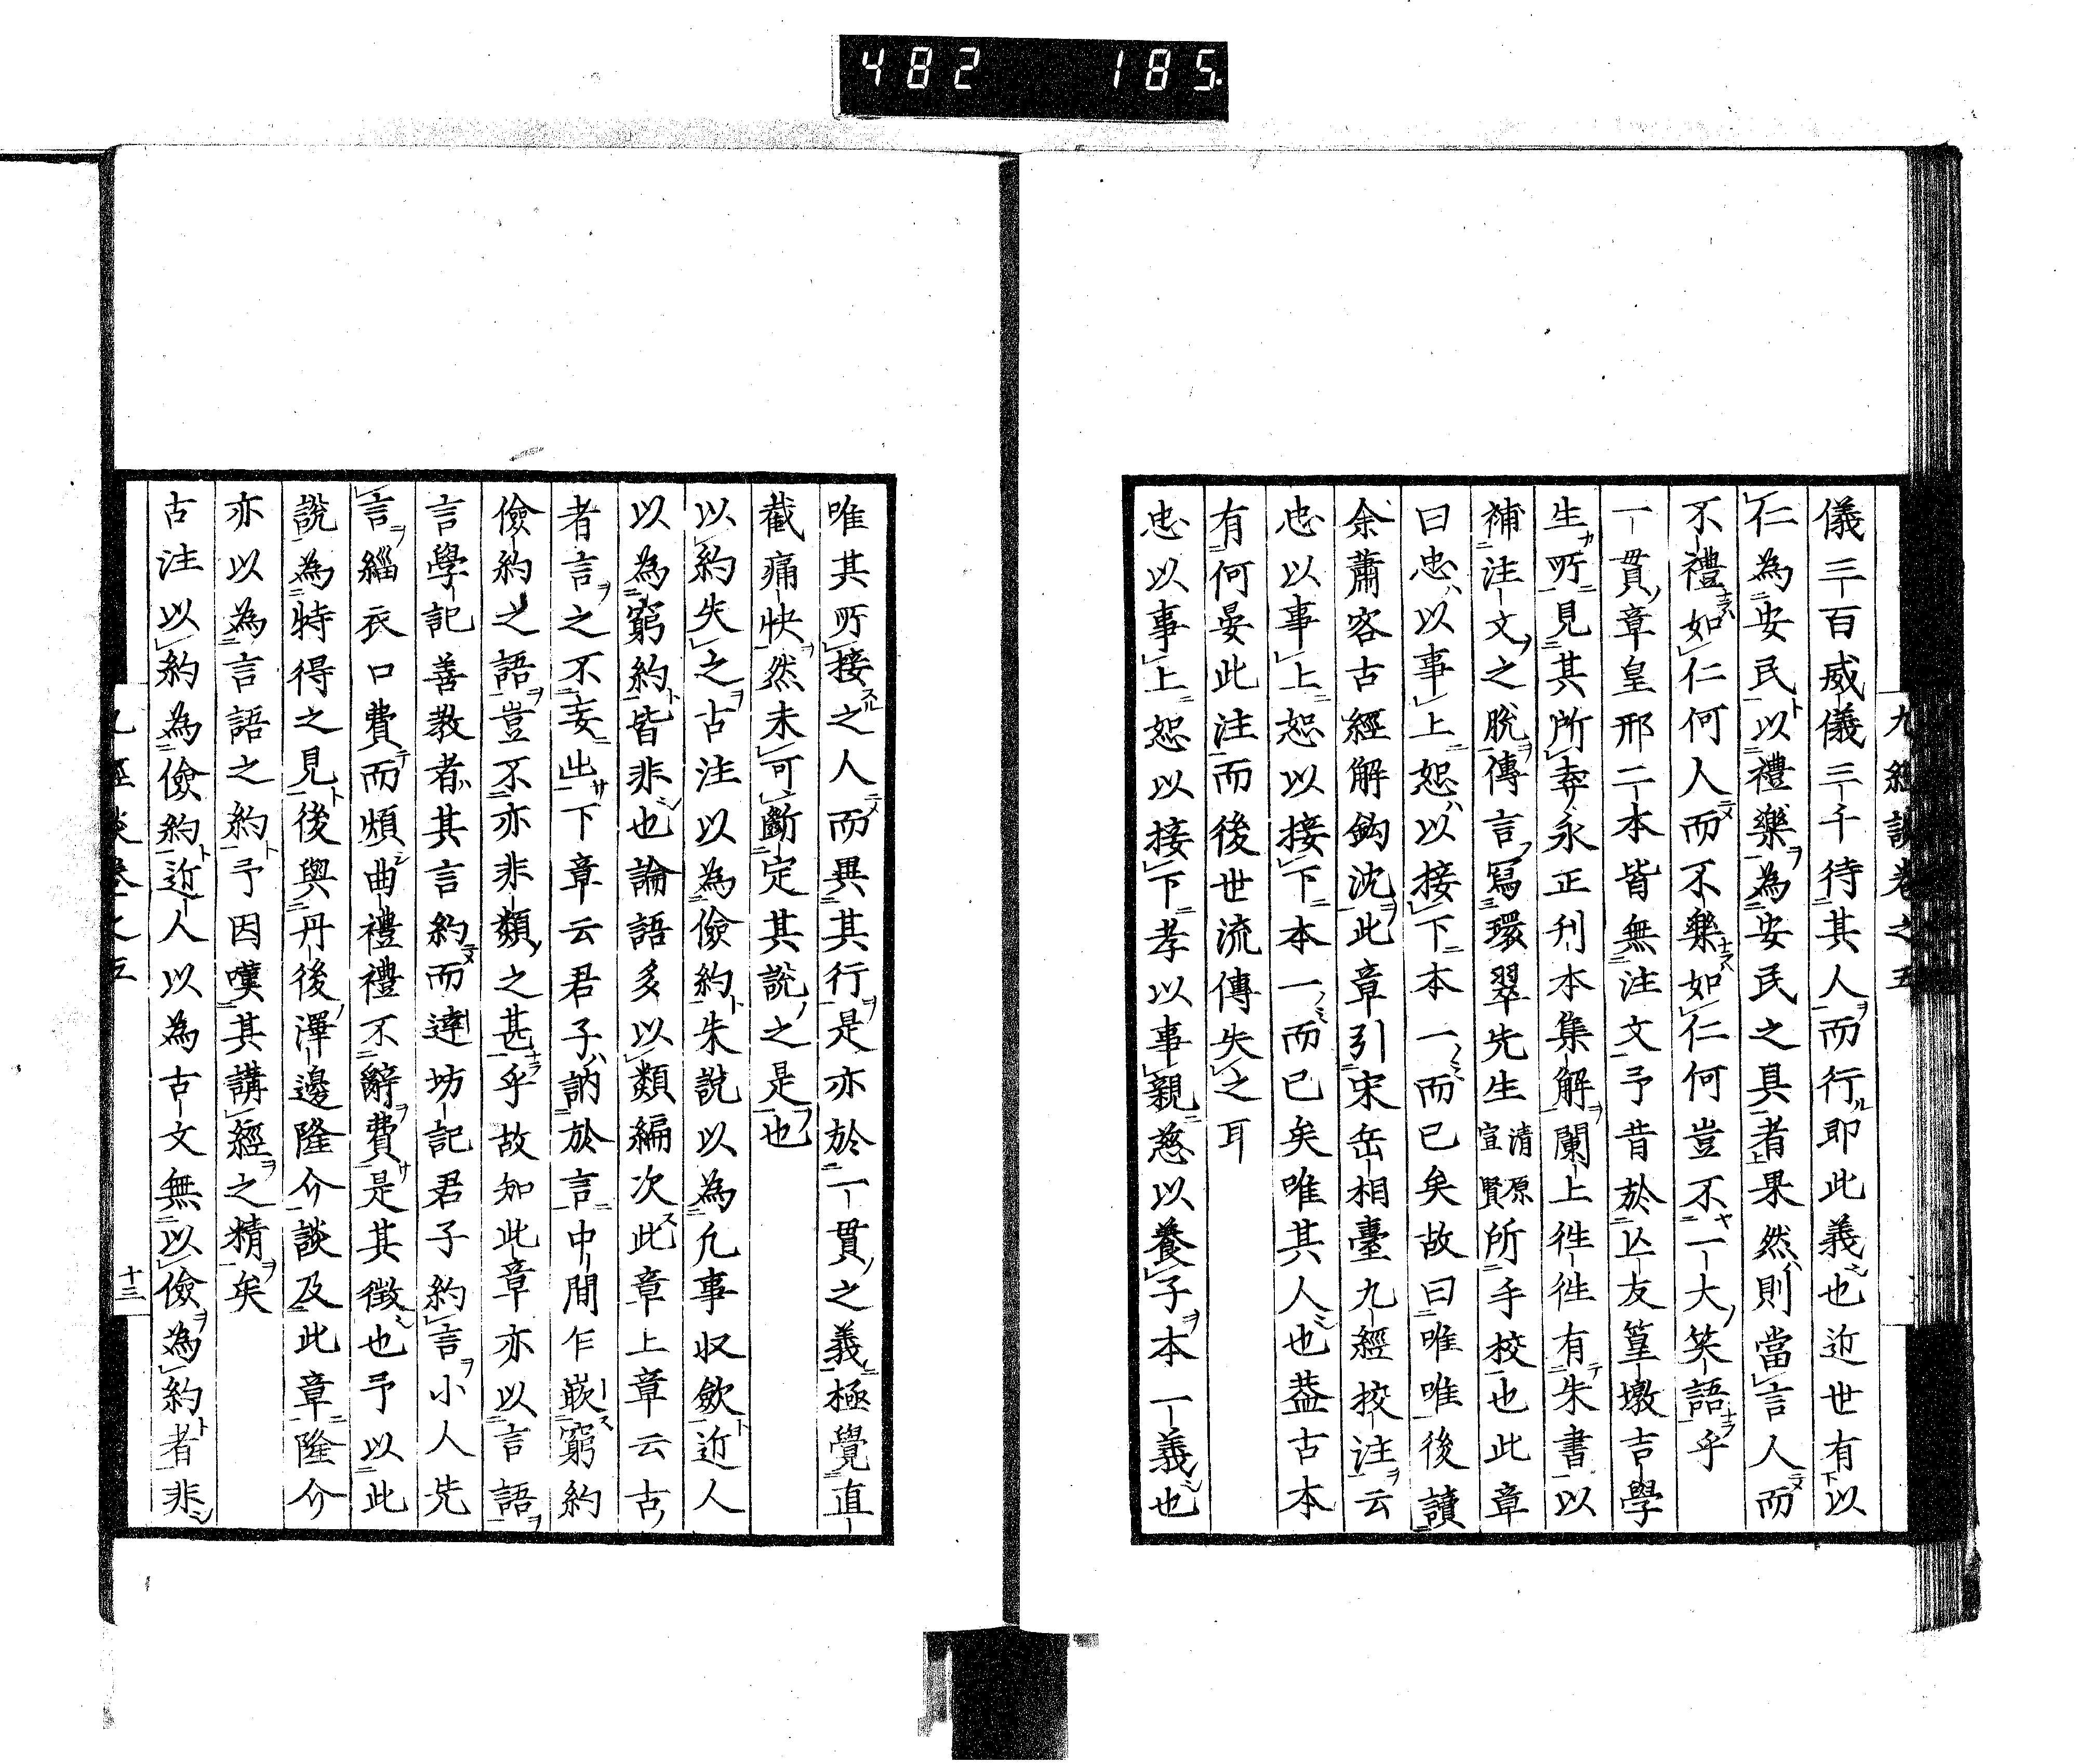 482 185.
九經談卷之五
儀三百威儀三千待其人而行即此義也近世有以
仁為安民以禮樂為安民之具者果然則當言人而
不禮如仁何人而不樂如仁何豈不一大笑語乎
一貫章皇邢二本皆無注文予昔於亾友篁墩吉學
生所見其所弆永正刊本集解闌上徃徃有朱書以
補注文之脫傳言寫環翠先生清原宣賢所手校也此章
曰忠以事上恕以接下本一而已矣故曰唯唯後讀
余蕭客古經解鈎沈此章引宋岳相臺九經挍注云
忠以事上恕以接下本一而已矣唯其人也葢古本
有何晏此注而後世流傳失之耳
忠以事上恕以接下孝以事親慈以養子本一義也
唯其所接之人而異其行是亦於一貫之義極覺直
截痛快然未可斷定其說之是也
以約失之古注以為儉約朱說以為凡事収歛近人
以為窮約皆非也論語多以類編次此章上章云古
者言之不妄出下章云君子訥於言中間乍嵌窮約
儉約之語豈不亦非類之甚乎故知此章亦以言語
言學記善教者其言約而達坊記君子約言小人先
言緇衣口費而煩曲禮禮不辭費是其徴也予以此
說為特得之見後與丹後澤邊隆介談及此章隆介
亦以為言語之約予因嘆其講經之精矣
古注以約為儉約近人以為古文無以儉為約者非
九經談卷之五
十三